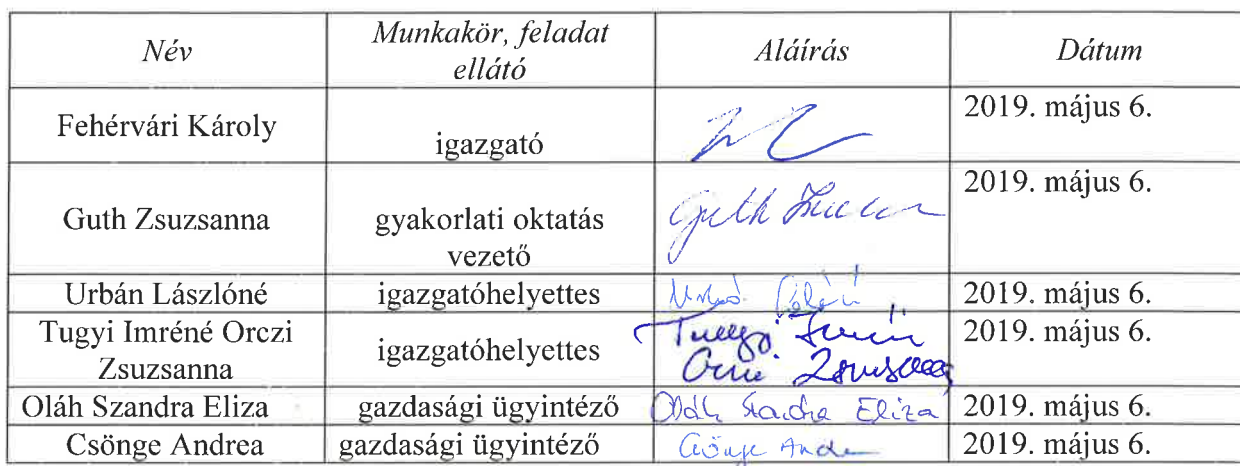 Név Munkakör, feladat ellátó Aláírás Dátum
Fehérvári Károly igazgató 2019. május 6.
Guth Zsuzsanna gyakorlati oktatás vezető Guth 2019. május 6.
Urbán Lászlóné igazgatóhelyettes 2019. május 6.
Tugyi Imréné Orczi Zsuzsanna igazgatóhelyettes 2019. május 6.
Oláh Szandra Eliza gazdasági ügyintéző Oláh Szandra Eliza 2019. május 6.
Csönge Andrea gazdasági ügyintéző Csönge 2019. május 6.